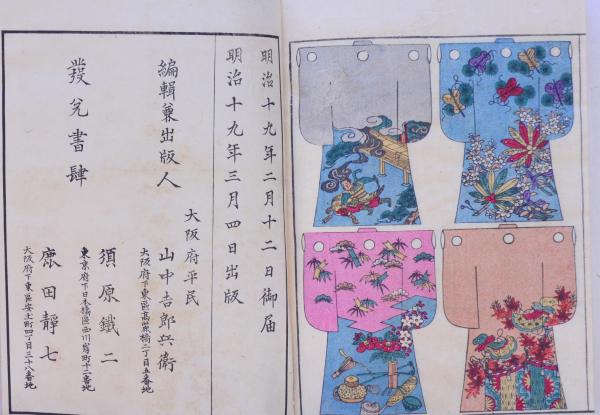 明治十九年二月十二日御届
明治十九年三月四日出版
編輯兼出版人
大阪府平民
山中吉郎兵衛
大阪府下東區高麗橋二丁目五番地
發兌書肆
須原鐵二
東京府下日本橋區西川岸町十二番地
鹿田靜七
大阪府下東區安土町四丁目三十八番地